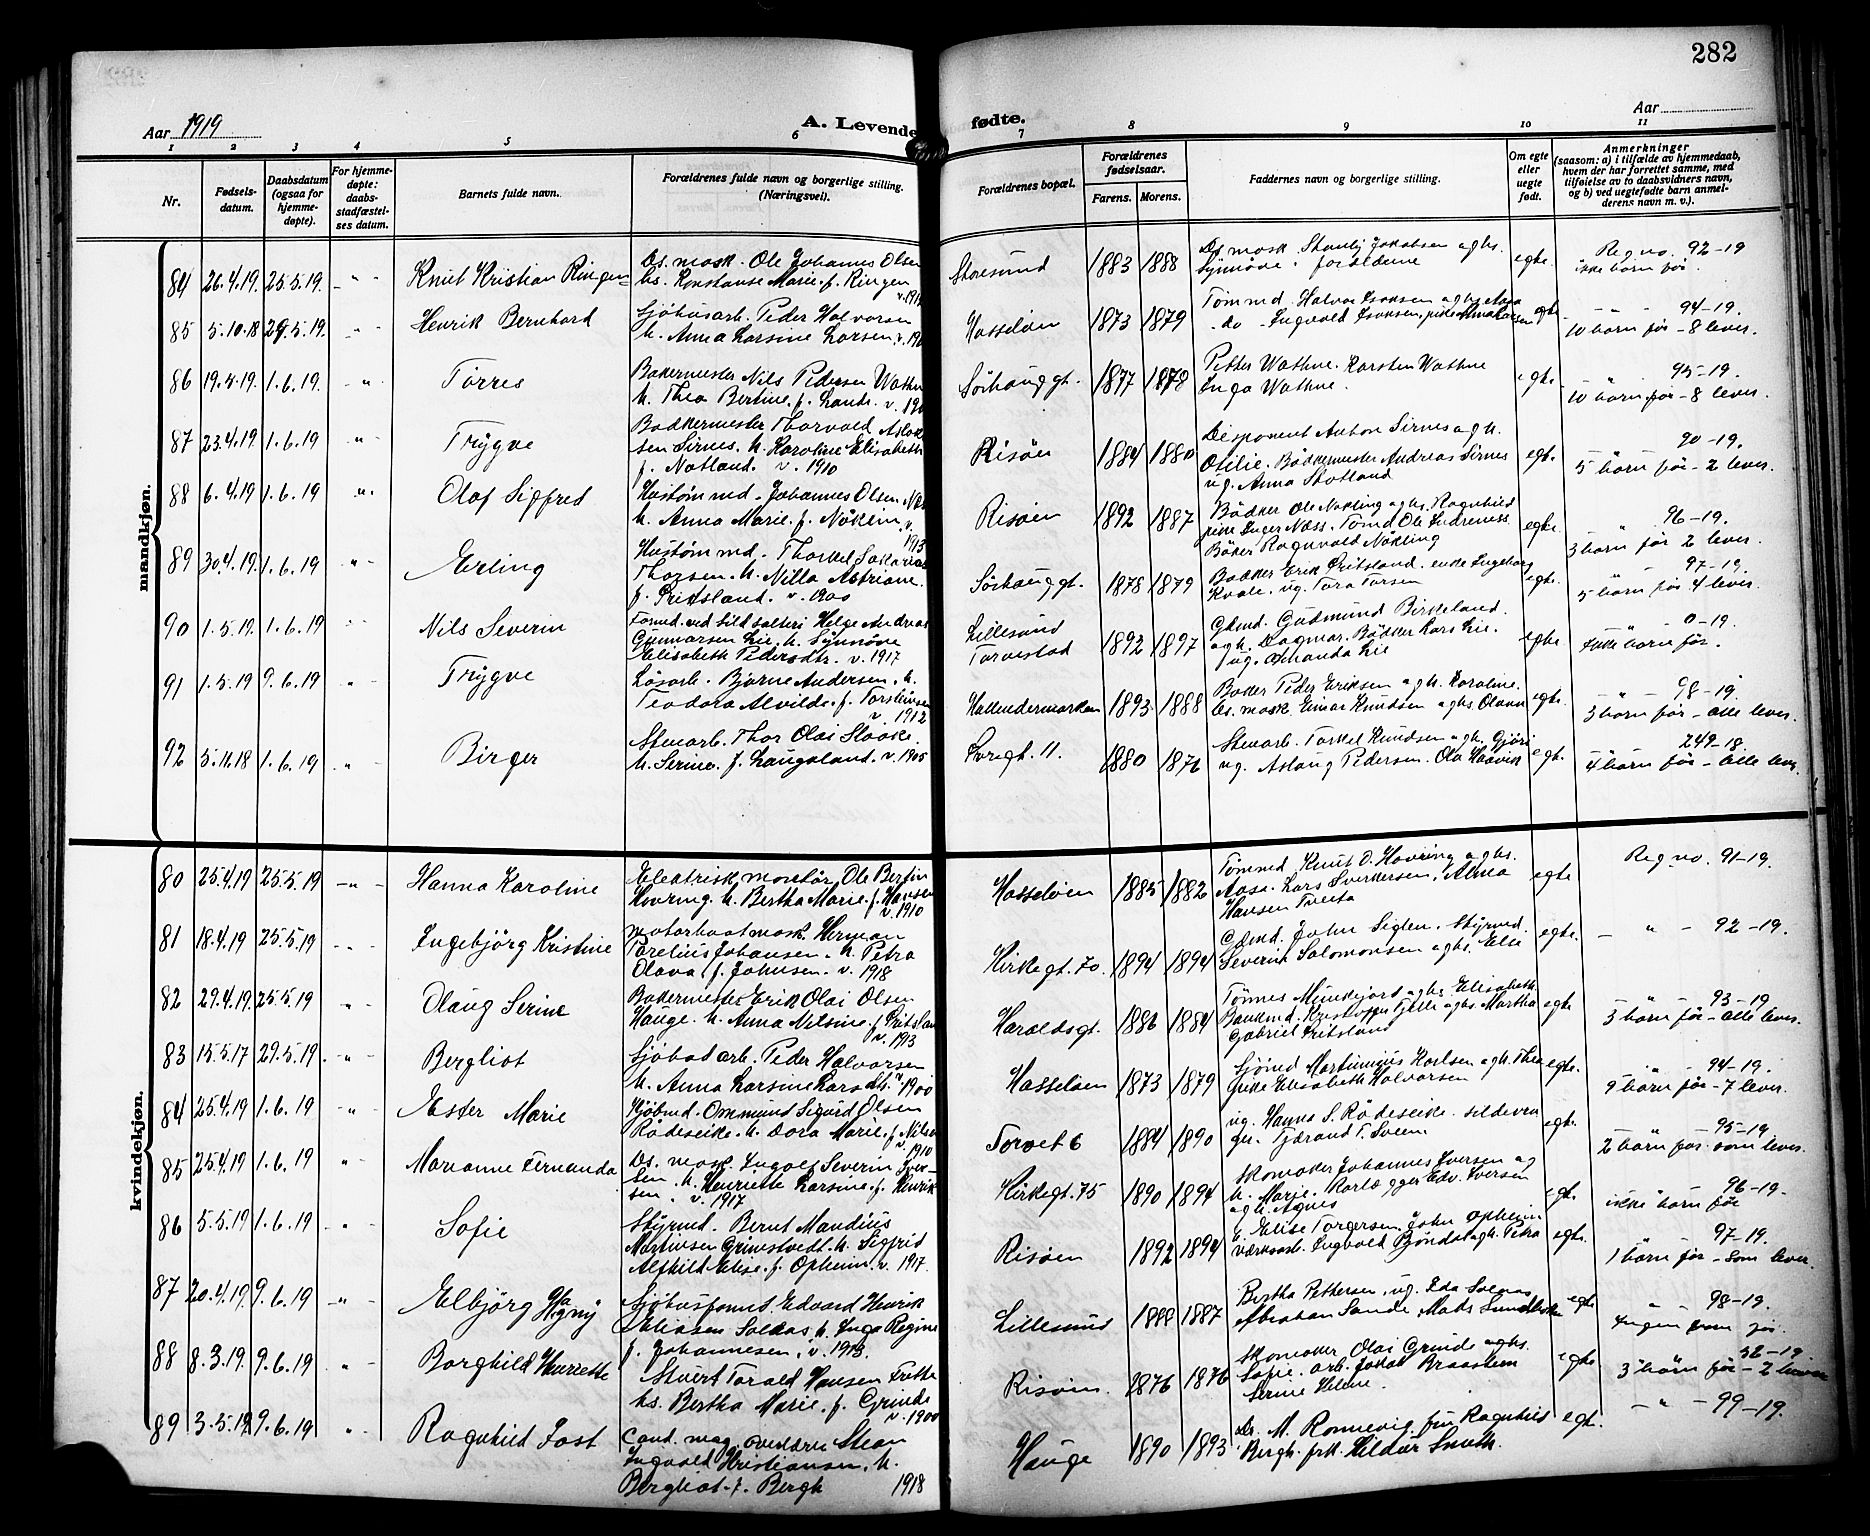 282
Aar 1919
A. Levende fødte.
Aar
1 2 3 4 5 6 7 8 9 10 11
Nr.
Fødsels-
datum.
Daabsdatum
(ogsaa for
hjemme-
døpte).
For hjemme-
døpte:
daabs-
stadfæstel-
ses datum.
Barnets fulde navn.
Forældrenes fulde navn og borgerlige stilling.
(Næringsvei).
Forældrenes bopæl.
Forældrenes
fødselsaar.
Farens. Morens.
Faddernes navn og borgerlige stilling.
Om egte
eller
uegte
født.
Anmerkninger
(saasom: a) i tilfælde av hjemmedaab,
hvem der har forrettet samme, med
tilføielse av to daabsvidners navn,
og b) ved uegtefødte barn anmel-
derens navn m. v.).
mandkjøn.
84 26.4.19. 25.5.19. - " - Knut Kristian Ringen
Ds. mask. Ole Johannes Olsen
hs. Konstanse Marie f. Ringen
Storesund 1883 1888
Ds mask. Stanly Jakobsen aghs.
Synnöve. forældrene
egte. Reg no. 92-19
ikke barn før.
85 5.10.18 29.5.19. " - Henrik Bernhard
Sjöhusarb. Peder Halvorsen
h. Anna Larsine Larsen.
Hasseløen 1873 1879
Tømmd. Halvor Isaksen aghs.
- do - Ingvald Isaksen, pike
egte. 94-19.
10 børn før - 8 lever.
86 19.4.19. 1.6.19. - " - Torres
Bakermester Nils Pedersen
h. Thea Bertine f. Lande.
Sörhauggt. 1877 1878
Petter Wathne. Karsten Wathne
Inga Wathne.
egte. 95-19.
10 børn før - 8 lever.
87 23.4.19 1.6.19 " - Trÿgve
Bødkermester Thorvald Aslak
sen Sirnes. h. Karoline Elisabeth
f. Notland. v. 1910
Risöen 1884 1880
Disponent Anton Sirnes agh.
Otilie. Bödkermester Andreas Sirnes
ug. Anna
egt. 90-19.
5 børn før - 2 lever.
88 6.4.19 1.6.19 " - Olaf Sigfred
Hustømmd. Johannes Olsen
h. Anna Marie f. Nökling
1913
Risöen 1892 1887
Bödker Ole Nökling aghs. Ragnhild
pike Inger Næss. Tømd Ole
Böker Ragnvald Nökling
egte. " 96-19.
3 børn før 2 lever.
89 30.4.19. 1.6.19 " - Erling
Hustømmd. Thorkel Sakarias
Thorsen. h. Nilla Astriane
f. Pritsland. v. 1900
Sörhauggt. 1878 1879
Bødker Erik Pritsland. enke Ingeborg
Kvale. ug. Tora Torsen
egte. 97-19.
5 børn før 4 lever.
90 1.5.19. 1.6.19 Nils Severin
Formd. ved sildsalteri Helge Andreas
Gunnarsen Lie. h. Synnöve
Elisabeth Pedersdtr. v. 1917
Lillesund
Torvestad 1892 1897
Gdmd. Gudmund Birkeland.
agh. Dagmar. Bödker Lars Lie.
ug. Amanda Lie
egte. 0-19.
ikke barn før.
91 1.5.19 9.6.19 " Trÿgve
Løsarb. Bjarne Andersen. h.
Teodora Alvilde f. Torsteinsen
v. 1912
Hallendermarken 1893 1888
Baker Peder Eriksen agh. Karoline.
Ds. mask. Einar Knudsen aghs Olava
egte. - " - 98-19.
3 børn før - alle lever.
92 5.11.18 1.6.19 - " - Birger
Stenarb. Thor Olai
h. Serine f. Laugaland. v. 1905
11. 1880 1876
Stenarb. Torkel Knudsen agh. Gjöri
ug. Aslaug Pedersen. Ola Haavik
egt. 249-18.
4 børn før - alle lever.
kvindekjøn.
80 25.4.19 25.5.19 - " - Hanna Karoline
Electrisk montör Ole Bertin
Hovring. h. Bertha Marie f. Hansen
v. 1910
Hasseløen 1885 1882
Tømmd Knut O. Hovring aghs.
Aasa. Lars Sverkersen. Alma
Hansen Tveita
egte Reg no. 91-19.
81 18.4.19 25.5.19 - " - Ingebjörg Kristine
Motorbaatmask. Herman
Torelius Johansen. h. Petra
Olava f. Johnsen. v. 1918
Kirkegt. 70. 1894 1894
Gdmd. John Siglen. Styrmd.
Severin Salomonsen aghs. Elie
egte. - " - 92-19.
82 29.4.19 25.5.19 " - Olaug Serine
Bakermester Erik Olai Olsen
Hauge. h. Anna Nilsine f. Pritsland
Haraldsgt. 1886 1884
Tönnes Munkejord aghs. Elisabeth.
Baadmd. Kristoffer Fjelle aghs Martha
Gabriel Pritsland
egte - " - 93-19
3 børn før - alle lever.
83 15.5.17 29.5.19. - " - Bergliot
Sjöhusarb. Peder Halvorsen
h. Anna Larsine Larsdtr. v. 1900
Hasseløen 1873 1879
Sjömd Martinius Karlsen agh. Thea
pike Elisabeth Halvorsen
egte. " - 94-19.
9 børn før - 7 lever.
84 25.4.19 1.6.19 - " - Ester Marie
Sjöbmd. Ommund Sigurd Olsen
Rödeseike. h. Dora Marie f. Nilsen
v. 1910
Torvet 6 1884 1890
ug. Hanna S. Rödeseike.
Tjærand T. Sveen
egte. 95-19
2 børn før som lever.
85 25.4.19 1.6.19 " - Marianne Fernanda
Ds. mask. Ingolf Severin Iver-
sen. h. Henriette Larsine f. Henrik
sen. v. 1917
Kirkegt. 75 1890 1894
Skomaker Johannes Iversen ag
h. Marie. Edv. Iversen
agh. Agnes
egt. 96-19.
ikke barn før
86 5.5.19 1.6.19 - " - Sofie
Styrmd. Bernt Mandius
Martinsen Grimstvedt. h. Sigfrid
Alfhild Elise f. Opheim v. 1917.
Risöen 1892 1894
Elise Torgersen. John Opheim
værksarb. Ingvald agh. Petra
egte. 97-19.
1 barn før - som lever.
87 20.4.19 9.6.19 - " - Elbjörg
Sjöhusformd. Edvard Henrik
Eliasen Saldas. h. Inga Regine
f. Johannesen. v. 1913.
Lillesund 1888 1887
Bertha Pettersen, ug. Eda
Abraham Sande Mads
egte " 98-19.
Ingen barn før.
88 8.3.19 9.6.19 " - Borghild Henriette
Stuert Torald Hansen
hs. Bertha Marie f. Grinde
v. 1900
Risöen. 1876 1876
Skomaker Olai Grinde aghs.
Sofie. arb. Jakob
Serine Helene.
egte 52-19
3 børn før - 2 lever
89 3.5.19 9.6.19 " - Ragnhild Fast
Cand. mag. Stean
Ingvald Kristiansen. h.
Bergliot f. Bergh 1918
Hauge 1890 1893
Dr. M. Ronnevig. fru Ragnhild
Bergh. frk. Hildur Smith.
egt. - " - 99-19.